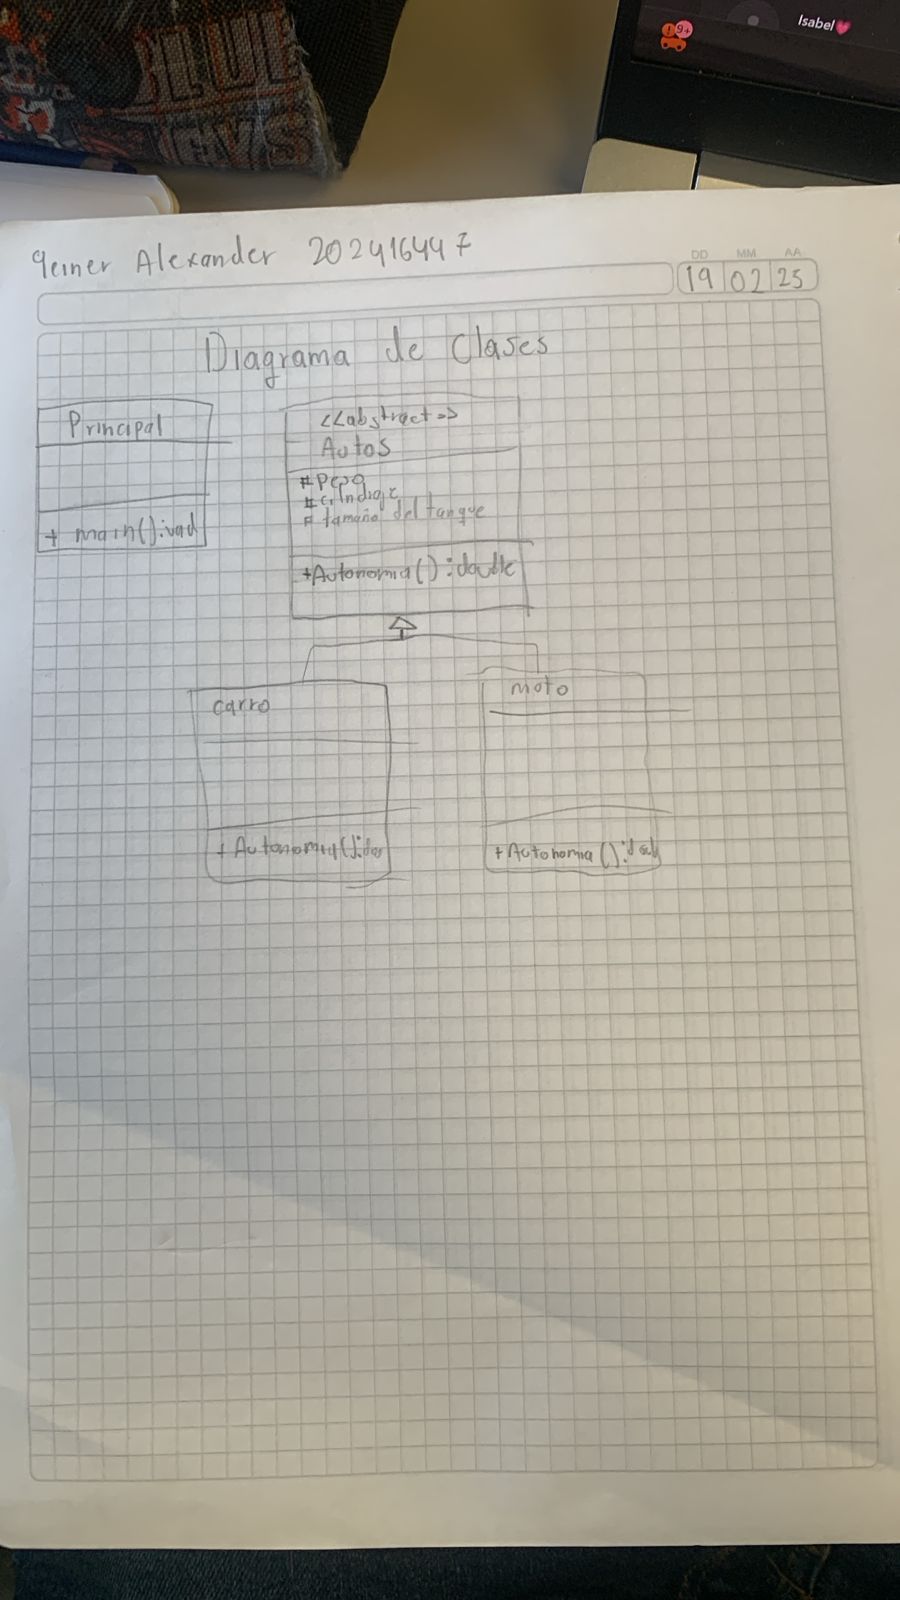 9+
Isabel💗
BLUE
JAYS
Yeiner Alexander 202416447
DD MM AA
19 02 25
Diagrama de Clases
Principal
+ main():void
<<abstract>>
Autos
# Peso
# cilindraje
# tamaño del tanque
+Autonomia():double
carro
+ Autonomia():do
moto
+Autonomia():